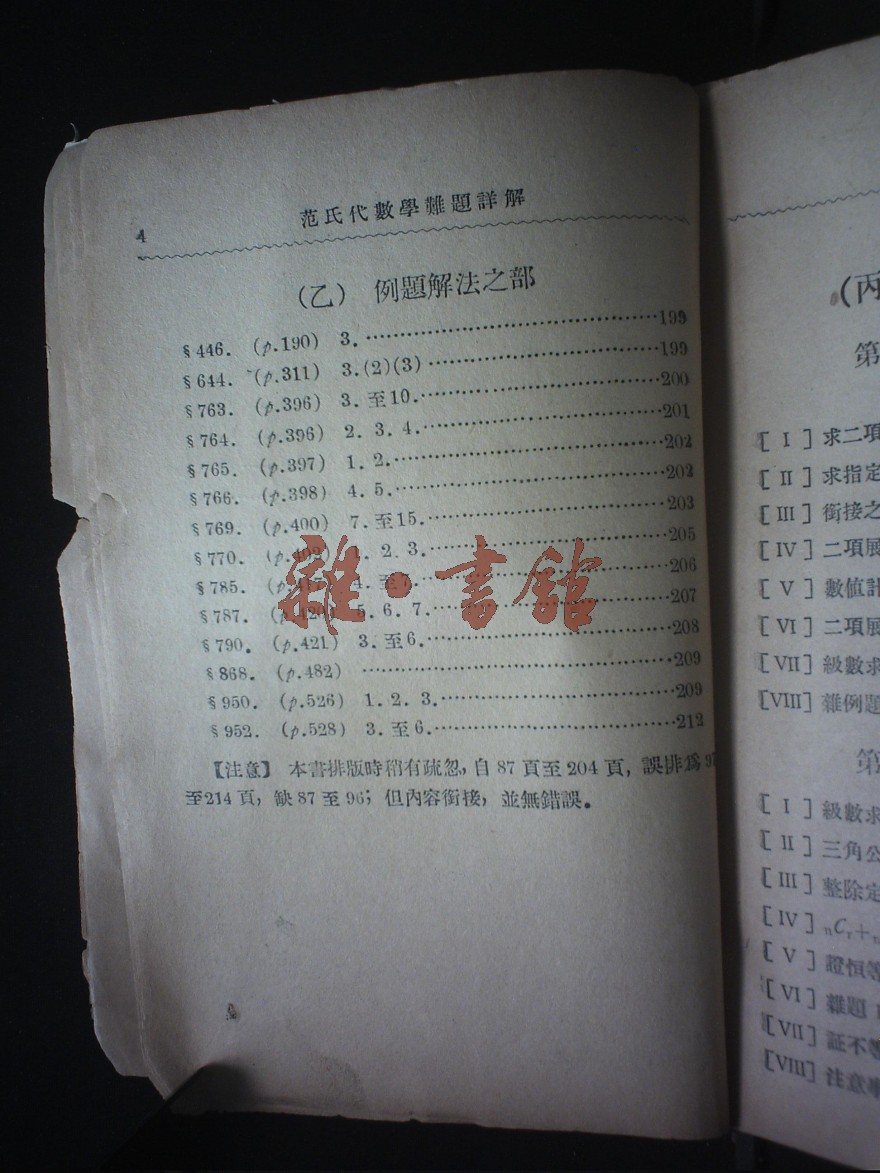 4
范氏代數學難題詳解
(乙) 例題解法之部
§446. (p.190) 3.…………199
§644. (p.311) 3.(2)(3)…………199
§763. (p.396) 3.至10.…………200
§764. (p.396) 2. 3. 4.…………201
§765. (p.397) 1. 2.…………202
§766. (p.398) 4. 5.…………202
§769. (p.400) 7.至15.…………203
§770. 1. 2. 3.…………205
§785. 4.至7.…………206
§787. 5. 6. 7.…………207
§790. (p.421) 3.至6.…………208
§868. (p.482) …………209
§950. (p.526) 1. 2. 3.…………209
§952. (p.528) 3.至6.…………212
【注意】 本書排版時稍有疏忽,自87頁至204頁,誤排爲97
至214頁,缺87至96;但內容銜接,並無錯誤。
雜·書館
(丙
第
[I] 求二項
[II] 求指定
[III] 銜接之
[IV] 二項展
[V] 數值計
[VI] 二項展
[VII] 級數求
[VIII] 雜例題
第
[I] 級數求
[II] 三角公
[III] 整除定
[IV] nCr+
[V] 證恒等
[VI] 雜題
[VII] 証不等
[VIII] 注意事